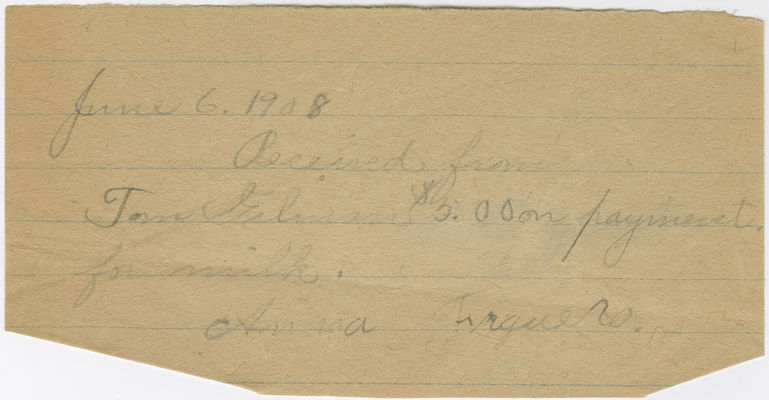 June 6. 1908
Received from
Tom Gilman $5.00 on payment
for milk.
Anna